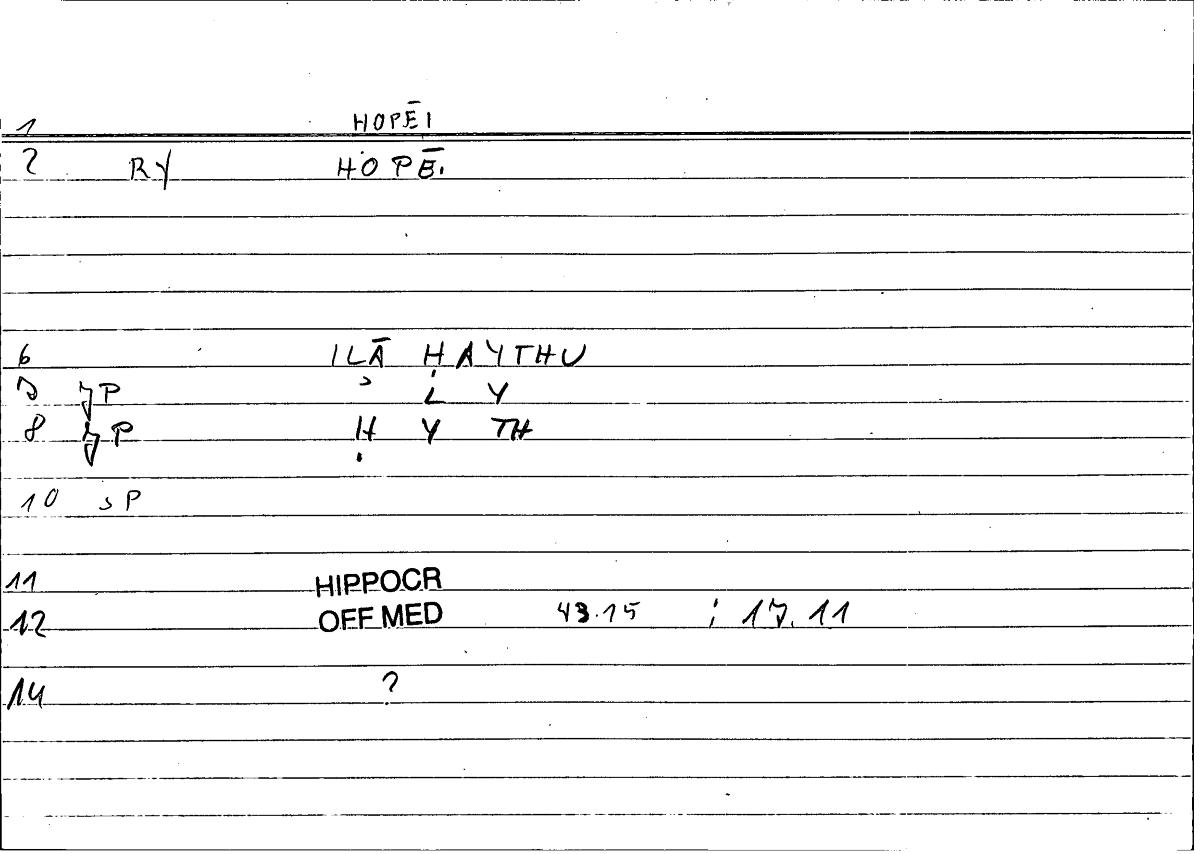 1 HOPĒI
2 RY HOPĒI
6 ILĀ ḤAYTHU
7 P ʾ L Y
8 P Ḥ Y TH
10 P
11 HIPPOCR
12 OFF MED 43.15 ; 17.11
14 ?